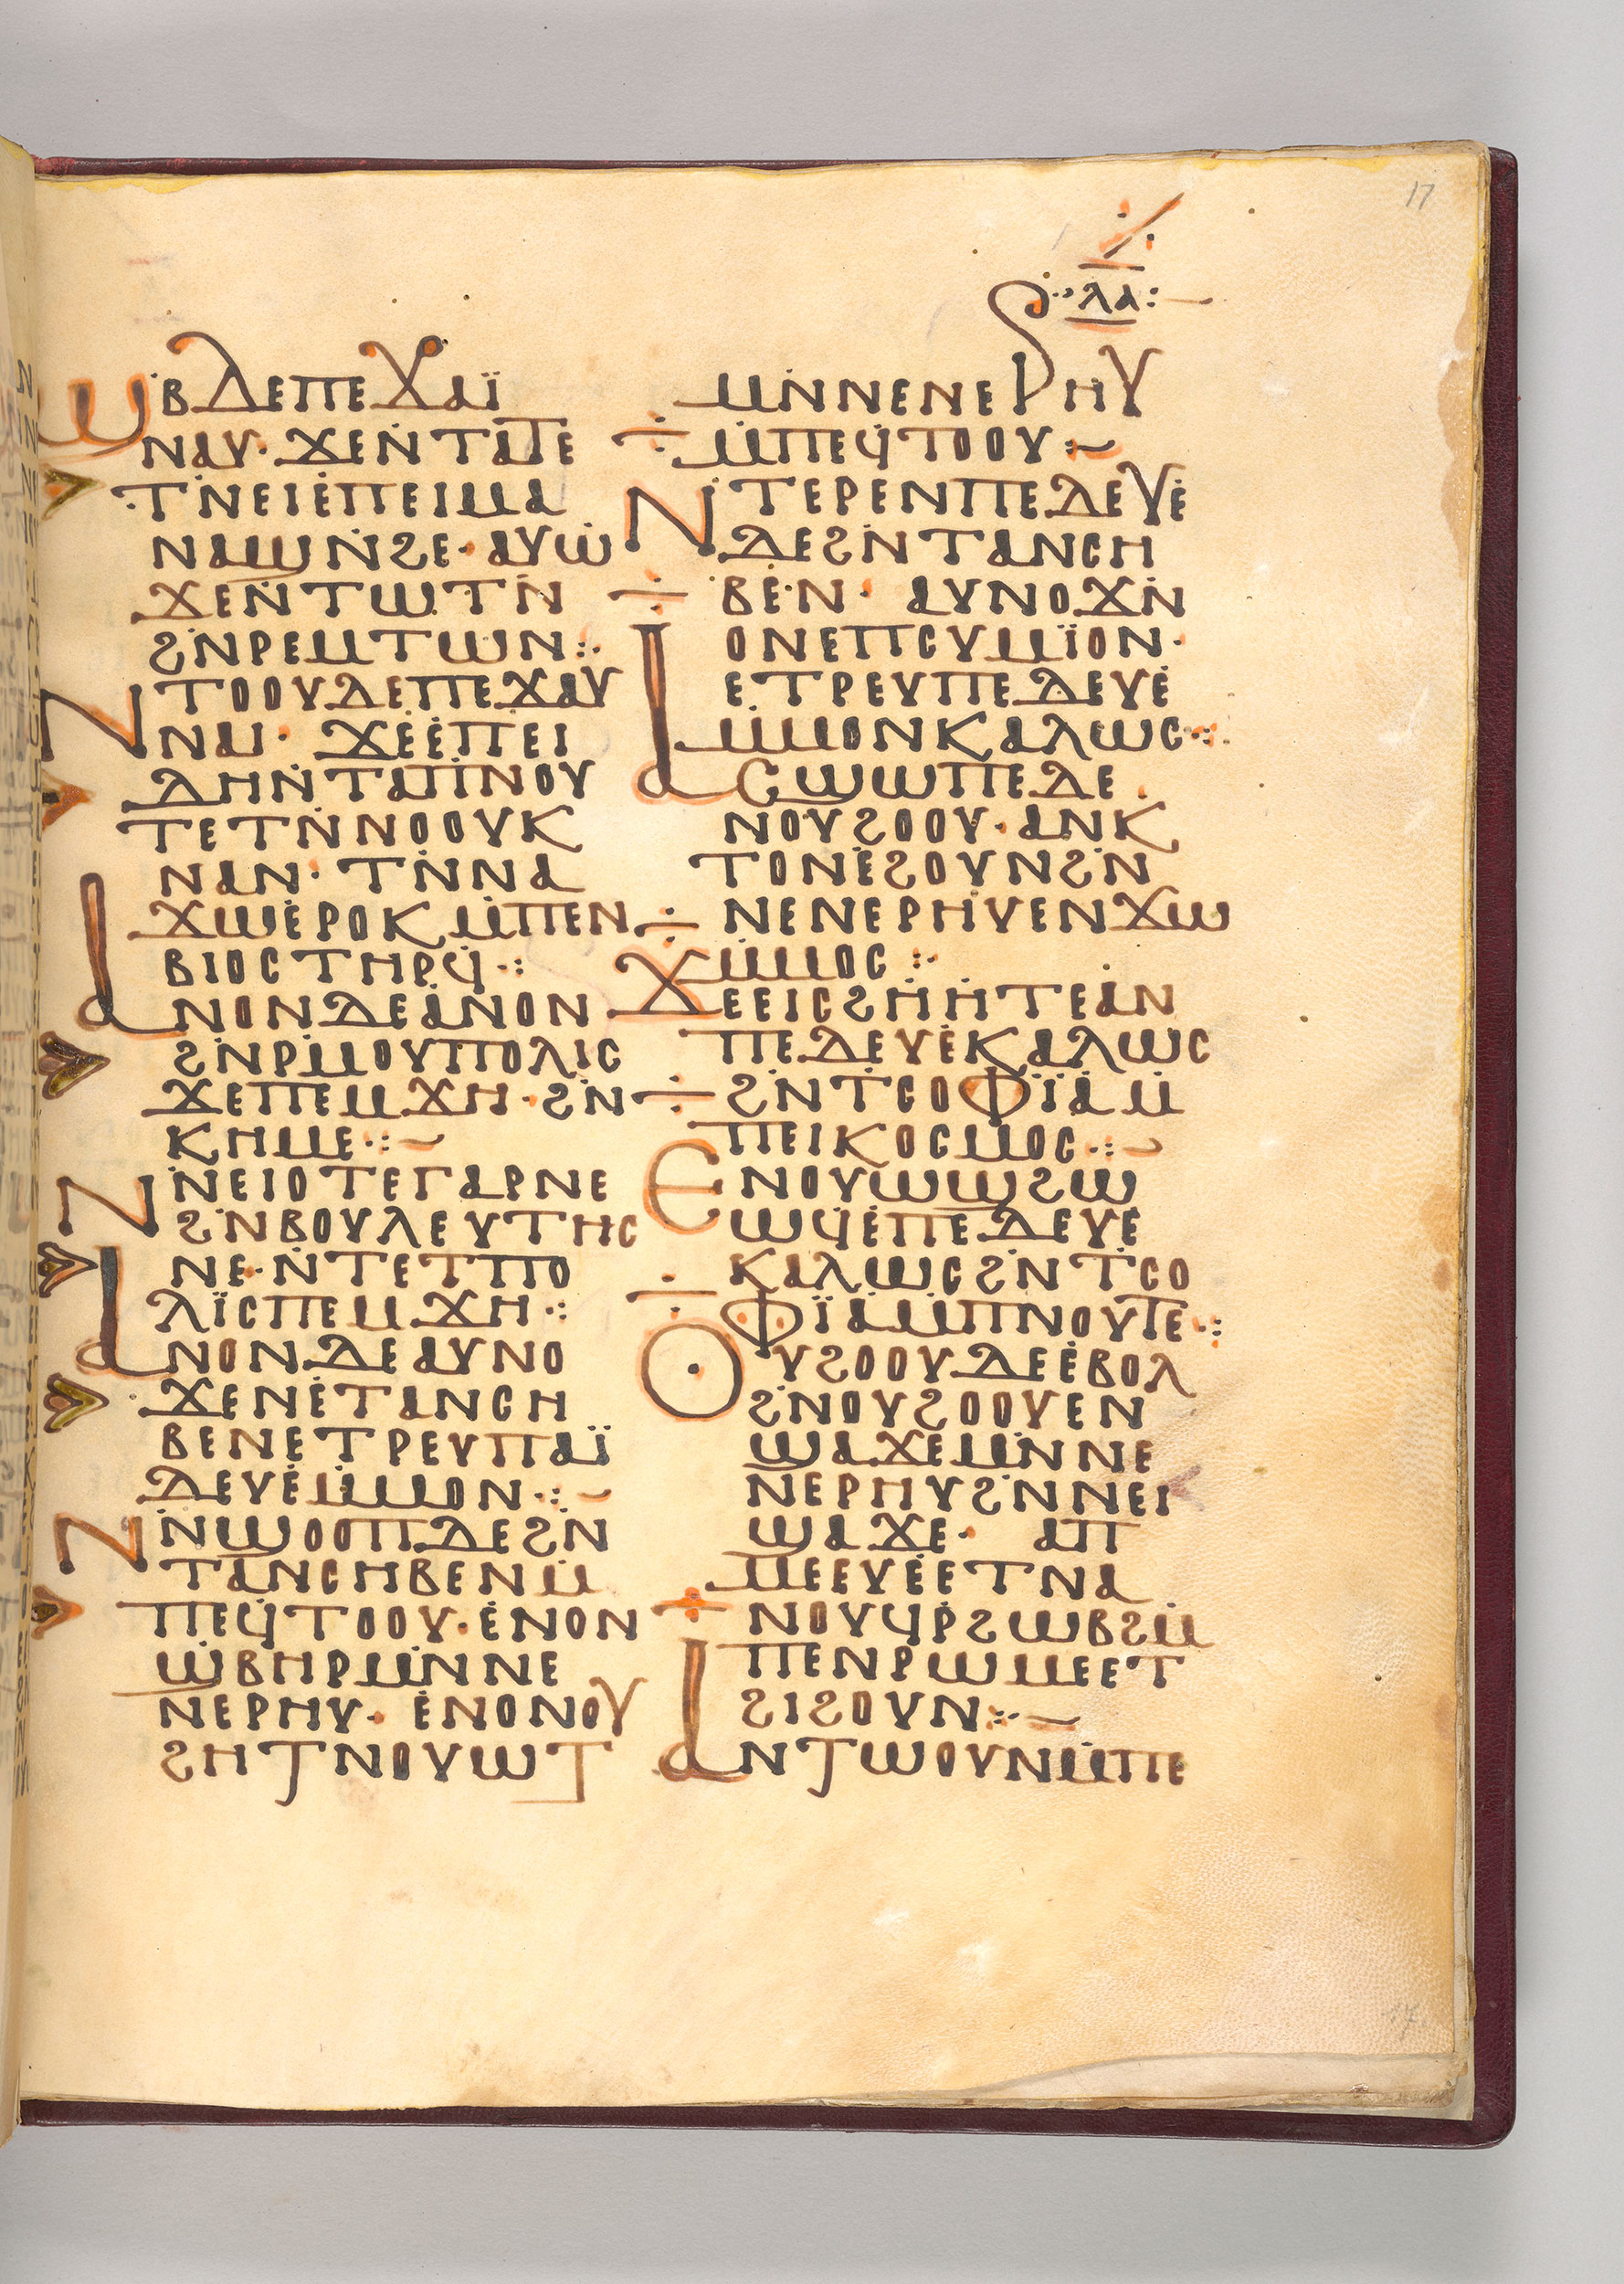 17
ⲗⲁ
ⲱⲃⲇⲉⲡⲉϫⲁⲓ̈
ⲛⲁⲩ· ϫⲉⲛ̇ⲧⲁⲧⲉ
ⲧⲛ̇ⲉⲓⲉ̇ⲡⲉⲓⲙⲁ
ⲛⲁϣⲛ̇ϩⲉ· ⲁⲩⲱ̇
ϫⲉⲛ̇ⲧⲱⲧⲛ̇
ϩⲛ̇ⲣⲉⲙⲧⲱⲛ⁖
ⲛⲧⲟⲟⲩⲇⲉⲡⲉϫⲁⲩ
ⲛⲁⲓ· ϫⲉⲉ̇ⲡⲉⲓ
ⲇⲏⲛ̇ⲧⲁⲡⲛⲟⲩ
ⲧⲉⲧⲛ̇ⲛⲟⲟⲩⲕ
ⲛⲁⲛ· ⲧⲛ̇ⲛⲁ
ϫⲱⲉ̇ⲣⲟⲕⲙ̇ⲡⲉⲛ
ⲃⲓⲟⲥⲧⲏⲣϥ⁖
ⲁⲛⲟⲛⲇⲉⲁ̇ⲛⲟⲛ
ϩⲛ̇ⲣⲙ̇ⲟⲩⲡⲟⲗⲓⲥ
ϫⲉⲡⲉⲙϫⲏ· ϩⲛ̇
ⲕⲏⲙⲉ⁖
ⲛⲛⲉⲓⲟⲧⲉⲅⲁⲣⲛⲉ
ϩⲛ̇ⲃⲟⲩⲗⲉⲩⲧⲏⲥ
ⲛⲉ·ⲛ̇ⲧⲉⲧⲡⲟ
ⲗⲓ̈ⲥⲡⲉⲙϫⲏ⁖
ⲁⲛⲟⲛⲇⲉⲁⲩⲛⲟ
ϫⲉⲛⲉ̇ⲧⲁⲛⲥⲏ
ⲃⲉⲛⲉⲧⲣⲉⲩⲡⲁⲓ̈
ⲇⲉⲩⲉ̇ⲙ̇ⲙⲟⲛ⁖
ⲛⲛ̇ϣⲟⲟⲡⲇⲉϩⲛ̇
ⲧⲁⲛⲥⲏⲃⲉⲛⲙ̇
ⲡⲉϥⲧⲟⲟⲩ· ⲉ̇ⲛⲟⲛ
ϣ̇ⲃⲏⲣⲙⲛ̇ⲛⲉ
ⲛⲉⲣⲏⲩ· ⲉ̇ⲛⲟⲛⲟⲩ
ϩⲏⲧⲛⲟⲩⲱⲧ
ⲙⲛ̇ⲛⲉⲛⲉⲣⲏⲩ
ⲙ̇ⲡⲉϥⲧⲟⲟⲩ⁖
ⲛ̇ⲧⲉⲣⲉⲛⲡⲉⲇⲉⲩⲉ̇
ⲇⲉϩⲛ̇ⲧⲁⲛⲥⲏ
ⲃⲉ·ⲛ· ⲁⲩⲛⲟϫⲛ̇
ⲟⲛⲉⲡⲥⲩⲙⲓ̈ⲟⲛ·
ⲉⲧⲣⲉⲩⲡⲉⲇⲉⲩⲉ̇
ⲙ̇ⲙⲟⲛⲕⲁⲗⲱⲥ⁖
ⲁⲥϣⲱⲡⲉⲇⲉ
ⲛⲟⲩϩⲟⲟⲩ· ⲁⲛⲕ
ⲧⲟⲛⲉ̇ϩⲟⲩⲛϩⲛ̇
ⲛⲉⲛⲉⲣⲏⲩⲉⲛϫⲱ
ⲙ̇ⲙⲟⲥ⁖
ϫⲉⲉⲓⲥϩⲏ̇ⲏ̇ⲧⲉⲁ̇ⲛ
ⲡⲉⲇⲉⲩⲉ̇ⲕⲁⲗⲱⲥ
ϩⲛ̇ⲧⲥⲟⲫⲓ̈ⲁⲙ̇
ⲡⲉⲓⲕⲟⲥⲙⲟⲥ⁖
ⲉⲛⲟⲩⲱϣϩⲱ
ⲱϥⲉ̇ⲡⲉⲇⲉⲩⲉ̇
ⲕⲁⲗⲱⲥϩⲛ̇ⲧⲥⲟ
ⲫⲓ̈ⲁⲙ̇ⲡⲛⲟⲩⲧⲉ⁖
ⲟⲩϩⲟⲟⲩⲇⲉⲉ̇ⲃⲟⲗ
ϩⲛ̇ⲟⲩϩⲟⲟⲩⲉⲛ
ϣⲁϫⲉⲙⲛ̇ⲛⲉ
ⲛⲉⲣⲏⲩϩⲛ̇ⲛⲉⲓ
ϣⲁϫⲉ· ⲁⲡ
ⲙⲉⲉⲩⲉ̇ⲉⲧⲛⲁ
ⲛⲟⲩϥⲣ̇ϩⲱⲃϩⲙ̇
ⲡⲉⲛⲣⲱⲙⲉⲉⲧ
ϩⲓϩⲟⲩⲛ⁖
ⲁⲛⲧⲱⲟⲩⲛⲙ̇ⲡⲉ
17